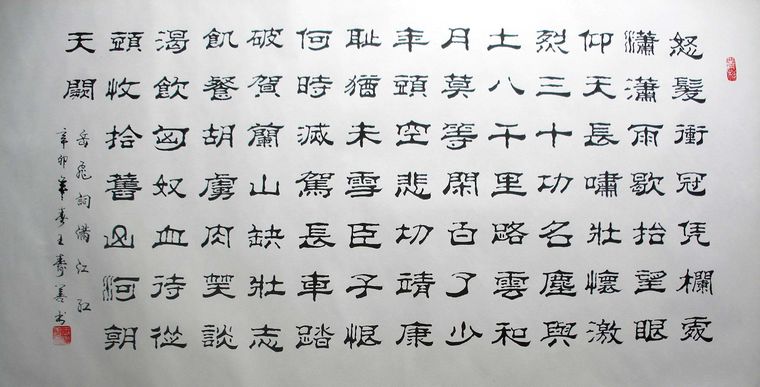 怒髮衝冠凭欄處
瀟瀟雨歇抬望眼
仰天長嘯壯懷激
烈三十功名塵與
土八千里路雲和
月莫等閑白了少
年頭空悲切靖康
耻猶未雪臣子恨
何時滅駕長車踏
破賀蘭山缺壯志
飢餐胡虜肉笑談
渴飲匈奴血待從
頭收拾舊山河朝
天闕
岳飛詞滿江紅
辛卯年春王壽善书